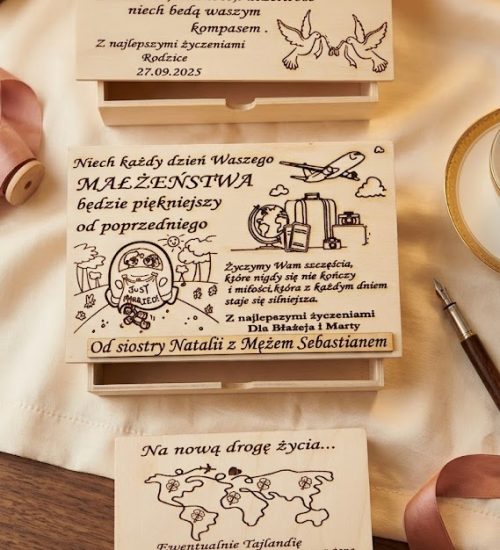 niech bedą waszym
kompasem .
Z najlepszymi życzeniami
Rodzice
27.09.2025
Niech każdy dzień Waszego
MAŁŻEŃSTWA
będzie piękniejszy
od poprzedniego
JUST
MARRIED!
Życzymy Wam szczęścia,
które nigdy się nie kończy
i miłości,która z każdym dniem
staje się silniejsza.
Z najlepszymi życzeniami
Dla Błażeja i Marty
Od siostry Natalii z Mężem Sebastianem
Na nową drogę życia...
Ewentualnie Tajlandię